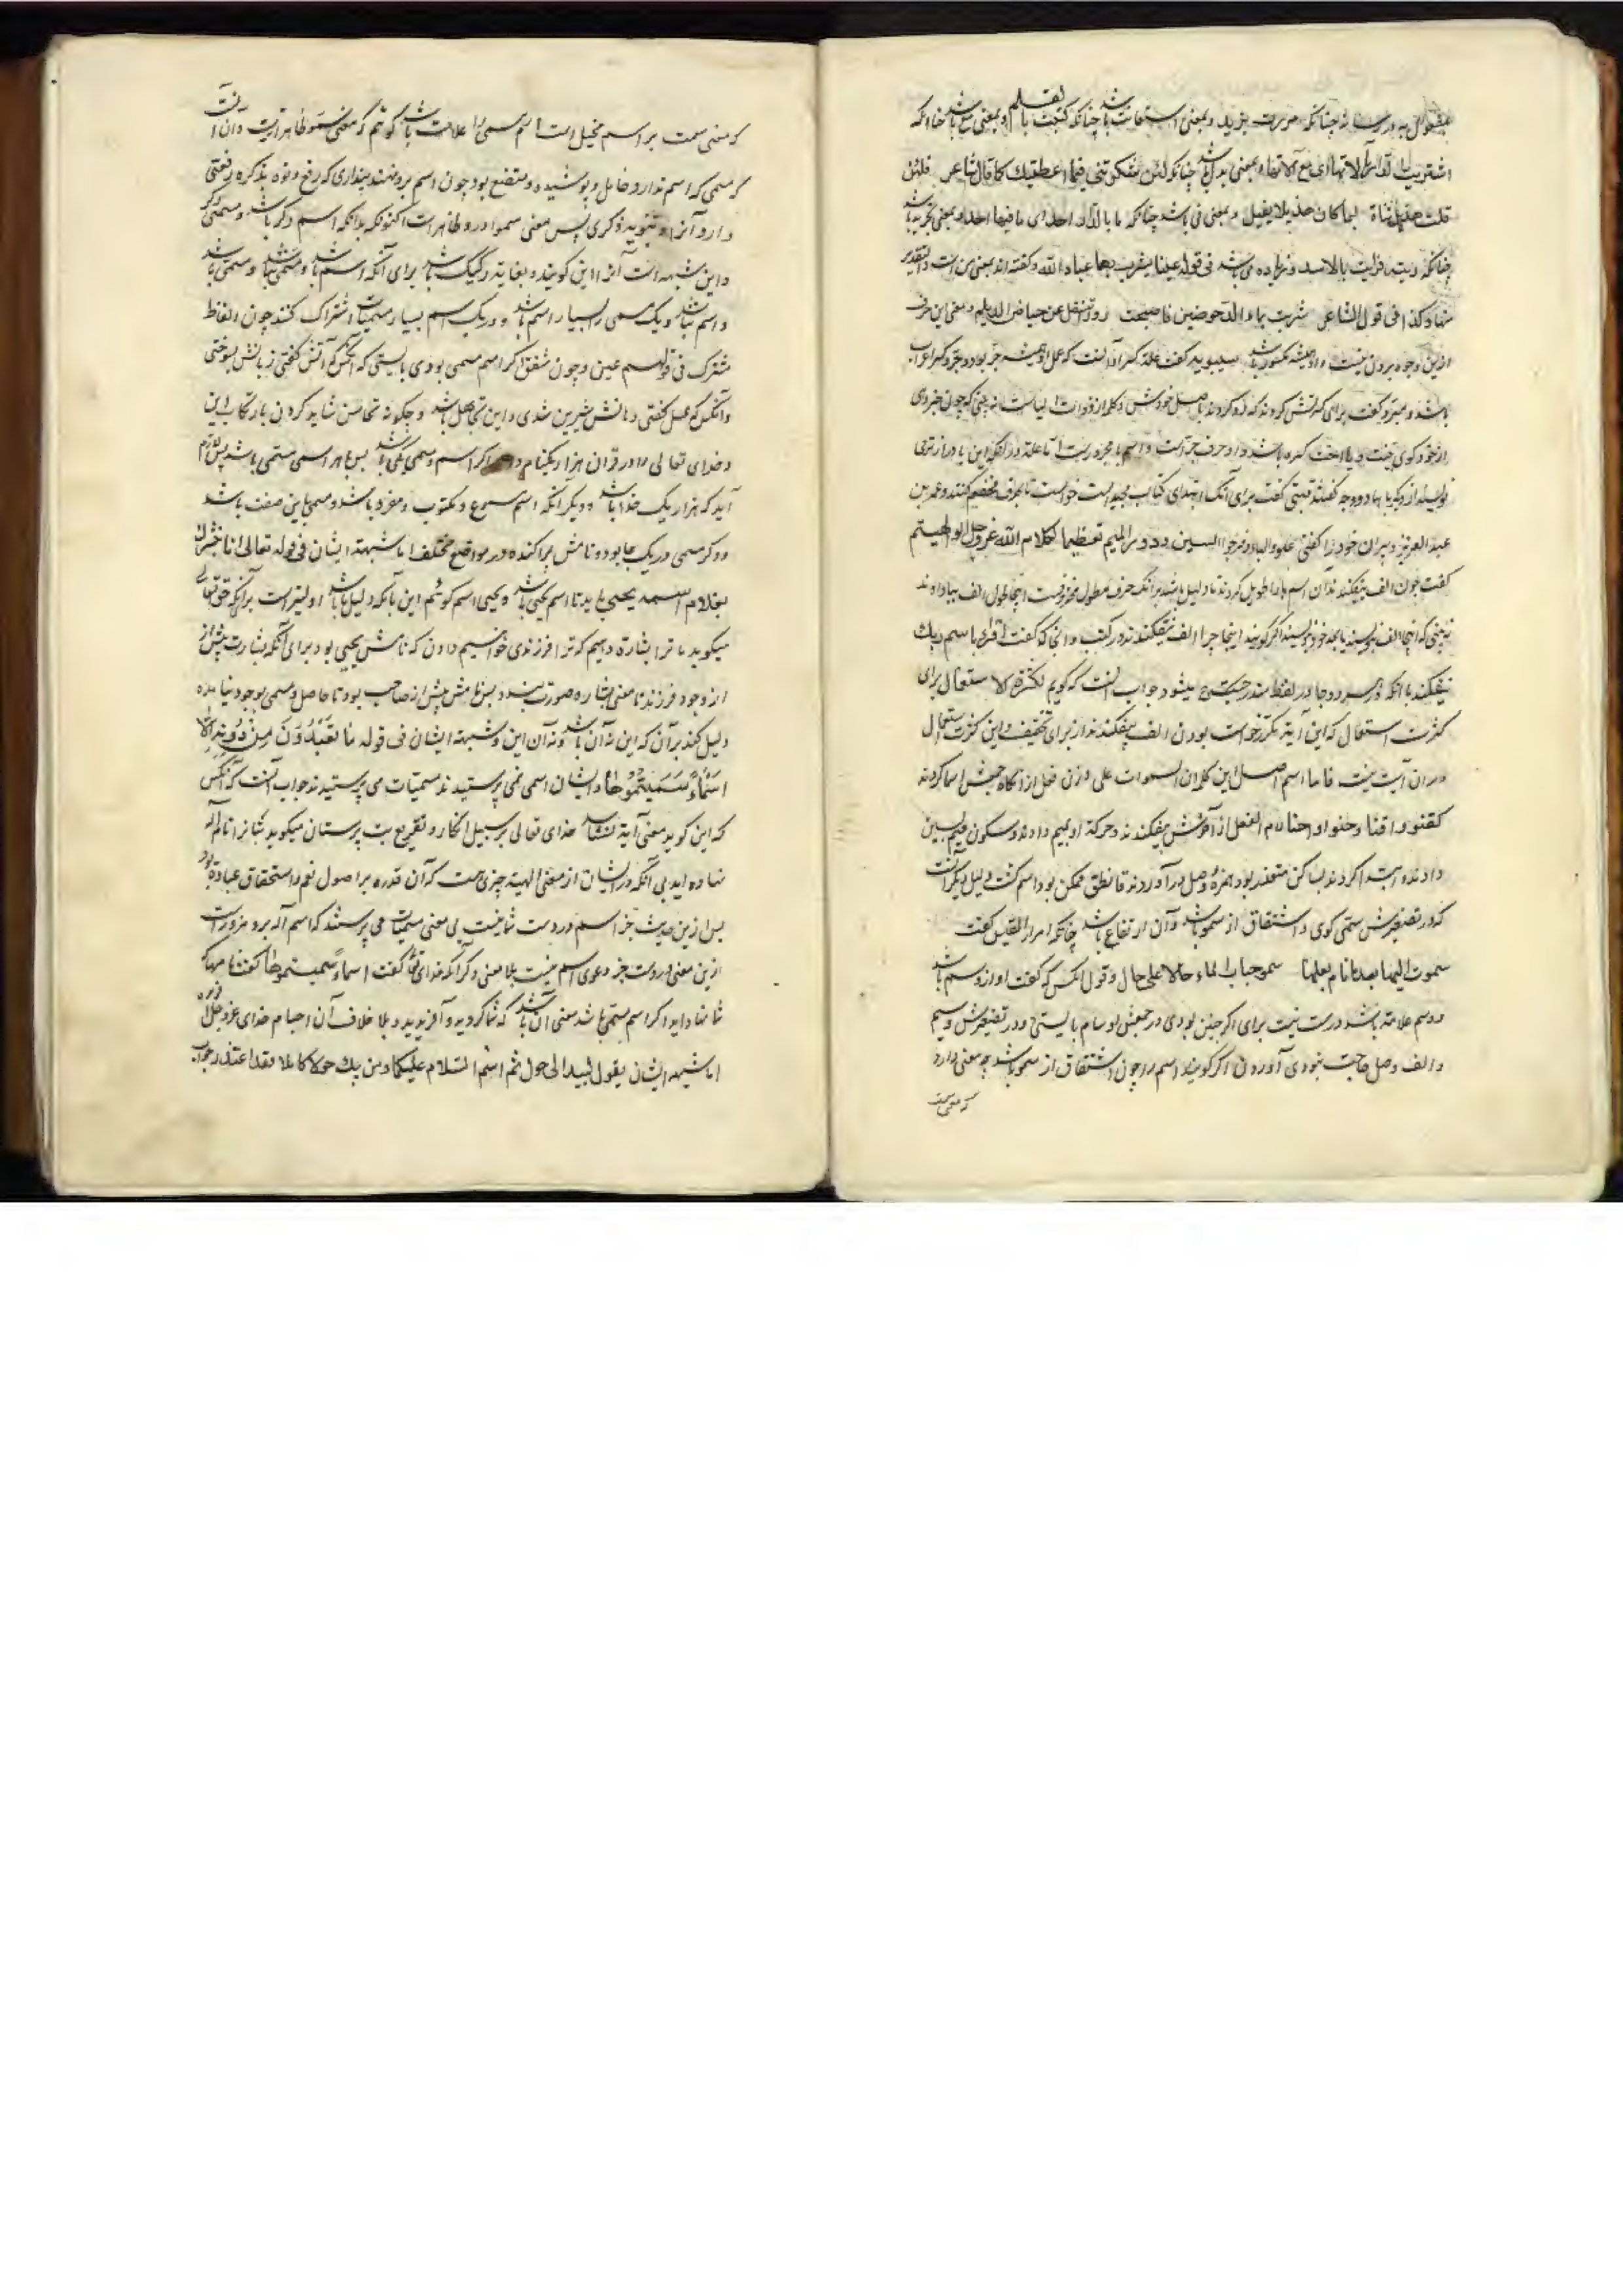 بمفعول به در رساند چنانکه مررت بزید و بمعنی استعانت باشد چنانکه کتبت بالقلم و بمعنی مع باشد چنانکه
اشتریت الدار بآلاتها ای مع آلاتها و بمعنی بدل باشد چنانکه لئن تشکرتنی فیما اعطیتک کما قال الشاعر فلئن
قلت هذیل شباة لبما کان هذیلا یفل و بمعنی فی باشد چنانکه ما بالدار احد ای ما فیها احد و بمعنی تجرید باشد
چنانکه رایت فرایت بالاسد و زیاده می باشد فی قوله عینا یشرب بها عباد الله و گفته اند بمعنی من است و التقدیر
منها و کذا فی قول الشاعر شربت بماء الدحرضین فاصبحت زوراء تنفر عن حیاض الدیلم و معنی این حرف
ازین وجوه برون نیست و او همیشه مکسور باشد سیبویه گفت علة کسر آن است که عمل او همیشه جر بود و جر و کسر اعراب
باشد و مبرد گفت برای کسرتش کردند که رد کردند با اصل خودش و کلمه از ذوات الیا است نه بینی که چون خبر دهی
از خود گوی بیت و یا اخت کسره باشد و او حرف جر است و اسم با مجرور است اما علة در آنکه این با دراز تر می
نویسند از دیگر باها دو وجه گفتند قتیبی گفت برای آنکه ابتدای کتاب مجید است خواست تا بحرف مفخم کنند و عمر بن
عبد العزیز دبیران خود را گفتی طولوا الباء و فرجوا السین و دوروا المیم تعظیما لکلام الله عز و جل ابو الهیثم
گفت چون الف بیفکندند از اسم با را طویل کردند تا دلیل باشد بر آنکه حرف مطول محذوفست اینجا طول الف ببا دادند
نه بینی که اینجا الف بنویسند با بحد خود نویسند اگر گویند اینجا چرا الف بیفکندند در کتب و آنجا که گفت اقرأ باسم ربک
نیفکندند با آنکه در هر دو جا در لفظ مندرجست و جواب آنست که گویم لکثرة الاستعمال برای
کثرت استعمال که این آیة مکرر خواست بودن الف بیفکندند از برای تخفیف و این کثرت استعمال
در آن آیت نیست فاما اسم اصل این کلمه ان السموات علی وزن فعل از آنکه جمعش اسما کردند
کقنو و اقنا و حنو و احنا لام الفعل از آخرش بیفکندند و حرکة او بمیم دادند و سکون میم بسین
دادند ابتدا کردن بساکن متعذر بود همزه وصل در آوردند تا نطق ممکن بود اسم گشت دلیل دیگر آنست
که در تصغیرش سمی گوی و اشتقاق از سمو باشد و آن ارتفاع باشد چنانکه امرؤ القیس گفت
سموت الیها بعد ما نام بعلها سمو حباب الماء حالا علی حال و قول آنکس که گفت او از وسم باشد
و وسم علامة باشد درست نیست برای اگر چنین بودی در جمعش اوسام بایستی و در تصغیرش وسیم
و الف وصل حاجت نبودی آوردن اگر گویند اسم را چون اشتقاق از سمو باشد چه معنی دارد
که معنی سمت
که معنی سمت بر اسم مخیل است که اسم مسمی را علامت باشد گوئیم که معنی سمو ظاهرتر است و آن آنست
که مسمی که اسم ندارد خامل و پوشیده و متضع بود چون اسم برو نهند پنداری که رفع و نوه بذکره رفعتی
دارد آنرا و تنویه ذکری پس معنی سمو درو ظاهر است اکنون بدانکه اسم دگر باشد و مسمی دگر
و این شبهه است آنرا این گویند و بغایة رکیک باشد برای آنکه اسم باشد و مسمی نباشد و مسمی باشد
و اسم نباشد و یک مسمی را بسیار اسم باشد و در یک اسم بسیار مسمیات اشتراک کنند چون الفاظ
مشترک فی قولهم عین و جون شفق اگر اسم مسمی بودی بایستی که آنکس که آتش گفتی زبانش بسوختی
و آنکس که عسل گفتی دهانش شیرین شدی و این تجاهل باشد و چگونه تحاسن شاید کردن بارتکاب این
و خدای تعالی را در قرآن هزار و یکنام اگر اسم و مسمی یکی باشد پس با هر اسمی مسمی باشد پس لازم
آید که هزار و یک خدا باشد و دیگر آنکه اسم مسموع و مکتوب و مقرو باشد و مسمی باین صفت باشد
و دگر مسمی در یک جا بود و نامش پراکنده در مواضع مختلف اما شبهه ایشان فی قوله تعالی انا نبشرک
بغلام اسمه یحیی یا یدنا اسم یحیی باشد و یحیی اسم گوئیم این بآنکه دلیل ما باشد اولیتر است برای آنکه حق تعالی
میگوید ما ترا بشارة دهیم که ترا فرزندی خواهیم دادن که نامش یحیی بود برای آنکه بشارت پیش از
از وجود فرزند تا معنی بشاره صورت بندد پس نامش پیش از صاحب بود تا حاصل و مسمی بوجود نیامده
دلیل کند بر آن که این نه آن باشد و نه آن این و شبهه ایشان فی قوله ما تعبدون من دونه الا
اسماء سمیتموها و ایشان اسمی نمی پرستیدند مسمیات می پرستیدند جواب آنست که آنکس
که این گوید معنی آیة نشناسد خدای تعالی بر سبیل انکار و تقریع بت پرستان میگوید بتانرا نام اله
نهاده اید بی آنکه در ایشان از معنی الهیة چیزی هست که آن قدره بر اصول نعم و استحقاق عبادة بود
پس ازین حدیث جز اسم در دست شما نیست بی معنی مسمیات می پرستند که اسم آله برو مزور است
ازین معنی در دست جز دعوی اسم نیست بلا معنی و دگر آنکه خدای تعالی گفت اسماء سمیتموها گفت نامهاکه
شما نهاده اید اگر اسم مسمی باشد معنی آن باشد که شما کردید و آفریدید و بلا خلاف آن اجسام خدای عز و جل آفریده
اما شبهه ایشان بقول لبید الی حول ثم اسم السلام علیکما و من یبک حولا کاملا فقد اعتذر جواب